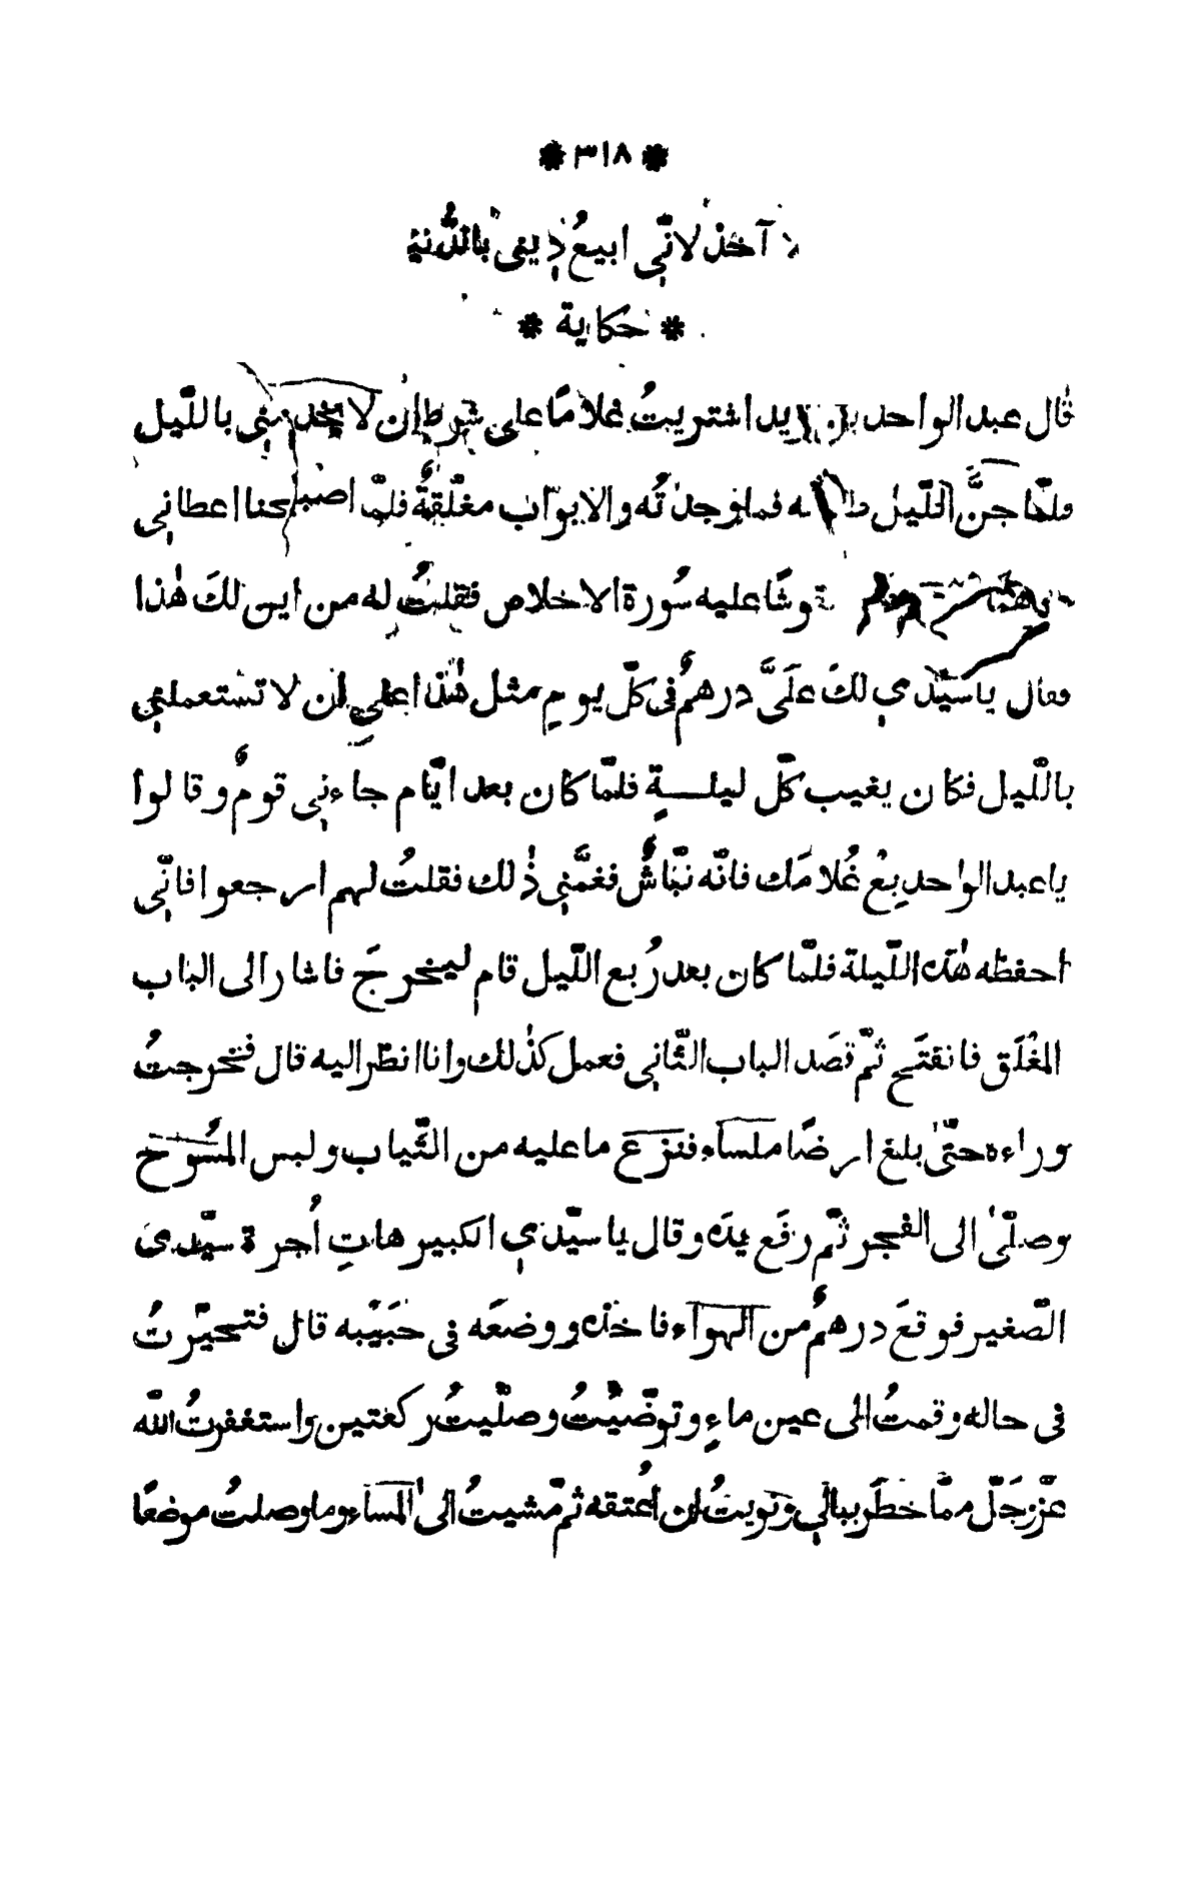 * ٣١٨ *
لا آخذ لانّي ابيعُ دِيني بالدُّنيا
* حكاية *
قال عبد الواحد بن زيد اشتريتُ غلامًا على شرط ان لا يخدمني بالليل
فلمّا جنَّ اللّيل طلبته فما وجدتُه والابوّاب مغلّقةٌ فلمّا اصبحنا اعطاني
درهمًا منقوشًا عليه سُورة الاخلاص فقلتُ له من اين لكَ هٰذا
فقال يا سيّدي لكَ علَىَّ درهمٌ فى كلّ يومٍ مثل هٰذا على ان لا تستعملني
بالّليل فكان يغيب كلّ ليلـــةٍ فلمّا كان بعد ايّام جاءني قومٌ وقالوا
يا عبد الواحدِ بِعْ غُلامَك فانّه نبّاشٌ فغمَّني ذٰلك فقلتُ لهم ارجعوا فانّي
احفظه هٰذه اللّيلة فلمّا كان بعد رُبع اللّيل قام ليخرجَ فاشار الى الباب
المغْلَق فانفتَح ثمّ قصَد الباب الثّاني فعمل كذٰلك وانا انظر اليه قال فخرجتُ
وراءه حتّىٰ بلغ ارضًا ملسآء فنزع ما عليه من الثّياب ولبس المسُوح
وصلّىٰ الى الفجر ثمّ رفَع يدَه وقال يا سيّدي الكبير هاتِ اُجرة سيّدى
الصّغير فوقعَ درهمٌ من الهوآء فاخذه ووضعَه فى جَيْبه قال فتحيّرتُ
فى حاله وقمتُ الى عين ماءٍ وتوضّيْتُ وصلّيتُ ركعتين واستغفرتُ اللّه
عزّ وجَلّ ممّا خطَر ببالي ونويتُ ان اُعتقه ثمّ مشيتُ الىٰ المسآء وما وصلتُ موضعًا